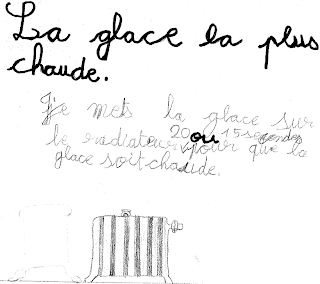 La glace la plus
chaude.
Je mets la glace sur
le radiateur 20 ou 15 secondes pour que la
glace soit chaude.